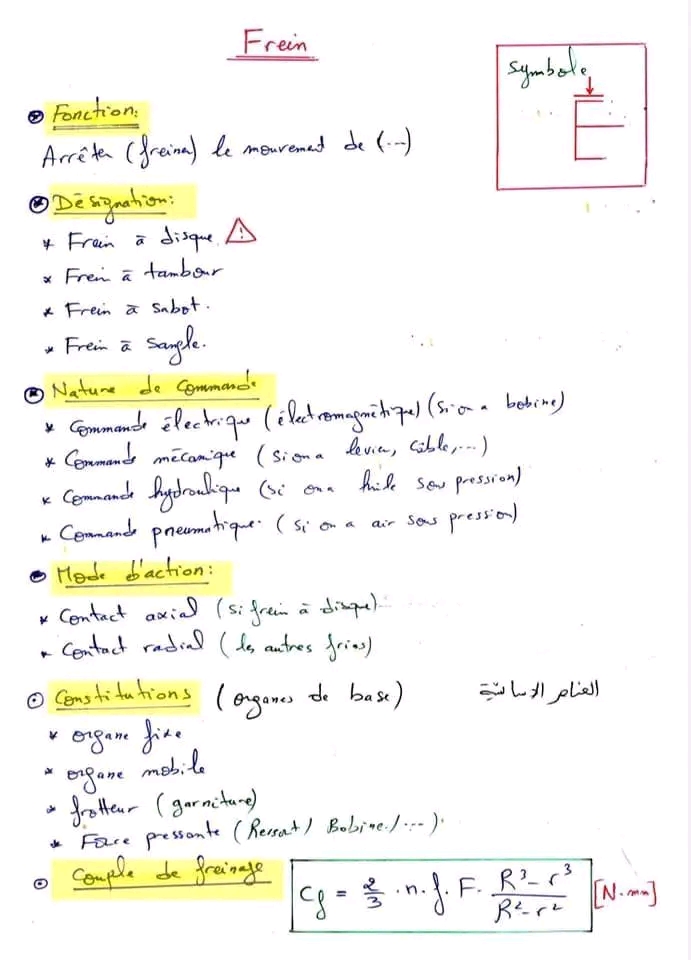 Frein
symbole
Fonction:
Arrêter (freiner) le mouvement de (...)
Désignation:
* Frein à disque.
* Frein à tambour
* Frein à Sabot.
* Frein à Sangle.
Nature de Commande
* Commande électrique (électromagnétique) (si on a bobine)
* Commande mécanique (si on a levier, câble,...)
* Commande hydraulique (si on a huile sous pression)
* Commande pneumatique. (si on a air sous pression)
Mode d'action:
* Contact axial (si frein à disque)
* Contact radial (les autres freins)
Constitutions (organes de base) العناصر الأساسية
* organe fixe
* organe mobile
* frotteur (garniture)
* Force pressante (Ressort / Bobine / ...).
Couple de freinage
Cf = 2/3 . n. f. F. R³ - r³ / R² - r² [N.mm]